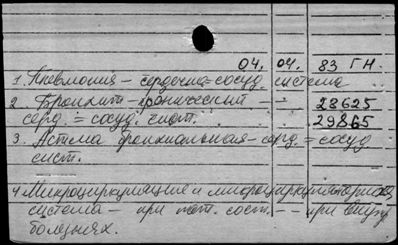 04. 04. 83 ГН.
1. Пневмония – сердечно=сосуд. система
2. Бронхит – хронический – – 28625
серд. = сосуд. сист. 29865
3. Астма бронхиальная – серд. = сосуд
сист.
4. Микроциркуляция и микроциркуляторная
система – при пат. сост. – при внутр
болезнях.